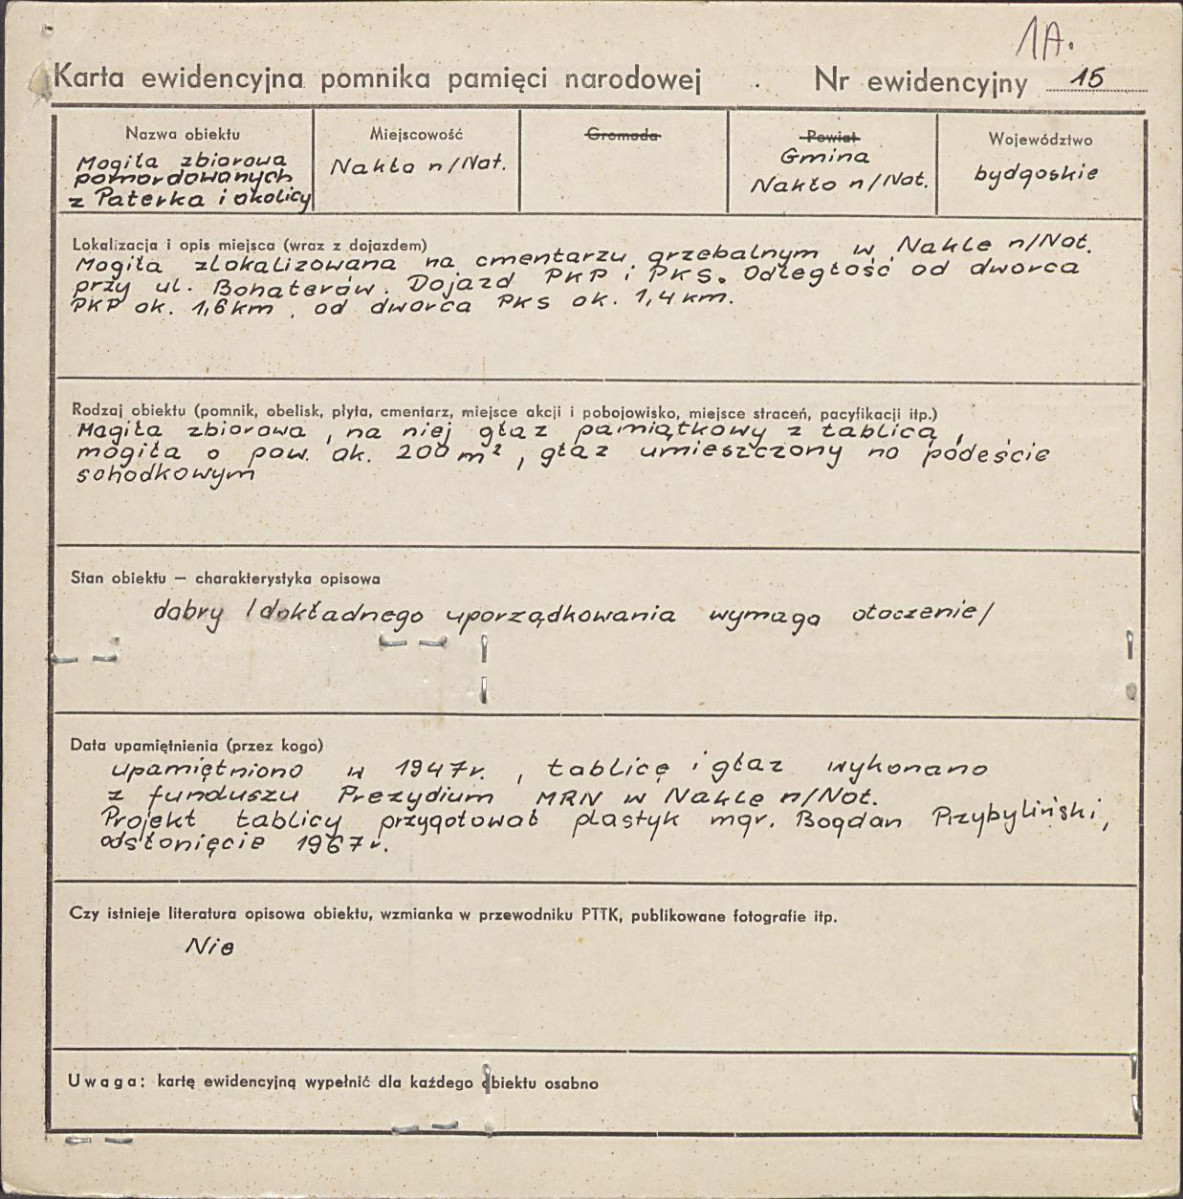 1A.
Karta ewidencyjna pomnika pamięci narodowej
Nr ewidencyjny 15
Nazwa obiektu
Mogiła zbiorowa
pomordowanych
z Paterka i okolicy
Miejscowość
Nakło n/Not.
Gromada
Powiat
Gmina
Nakło n/Not.
Województwo
bydgoskie
Lokalizacja i opis miejsca (wraz z dojazdem)
Mogiła zlokalizowana na cmentarzu grzebalnym w Nakle n/Not.
przy ul. Bohaterów. Dojazd PKP i PKS. Odległość od dworca
PKP ok. 1,6 km, od dworca PKS ok. 1,4 km.
Rodzaj obiektu (pomnik, obelisk, płyta, cmentarz, miejsce akcji i pobojowisko, miejsce straceń, pacyfikacji itp.)
Mogiła zbiorowa, na niej głaz pamiątkowy z tablicą,
mogiła o pow. ok. 200 m², głaz umieszczony na podeście
schodkowym
Stan obiektu — charakterystyka opisowa
dobry /dokładnego uporządkowania wymaga otoczenie/
Data upamiętnienia (przez kogo)
upamiętniono w 1947 r., tablicę i głaz wykonano
z funduszu Prezydium MRN w Nakle n/Not.
Projekt tablicy przygotował plastyk mgr. Bogdan Przybyliński,
odsłonięcie 1967 r.
Czy istnieje literatura opisowa obiektu, wzmianka w przewodniku PTTK, publikowane fotografie itp.
Nie
Uwaga: kartę ewidencyjną wypełnić dla każdego obiektu osobno